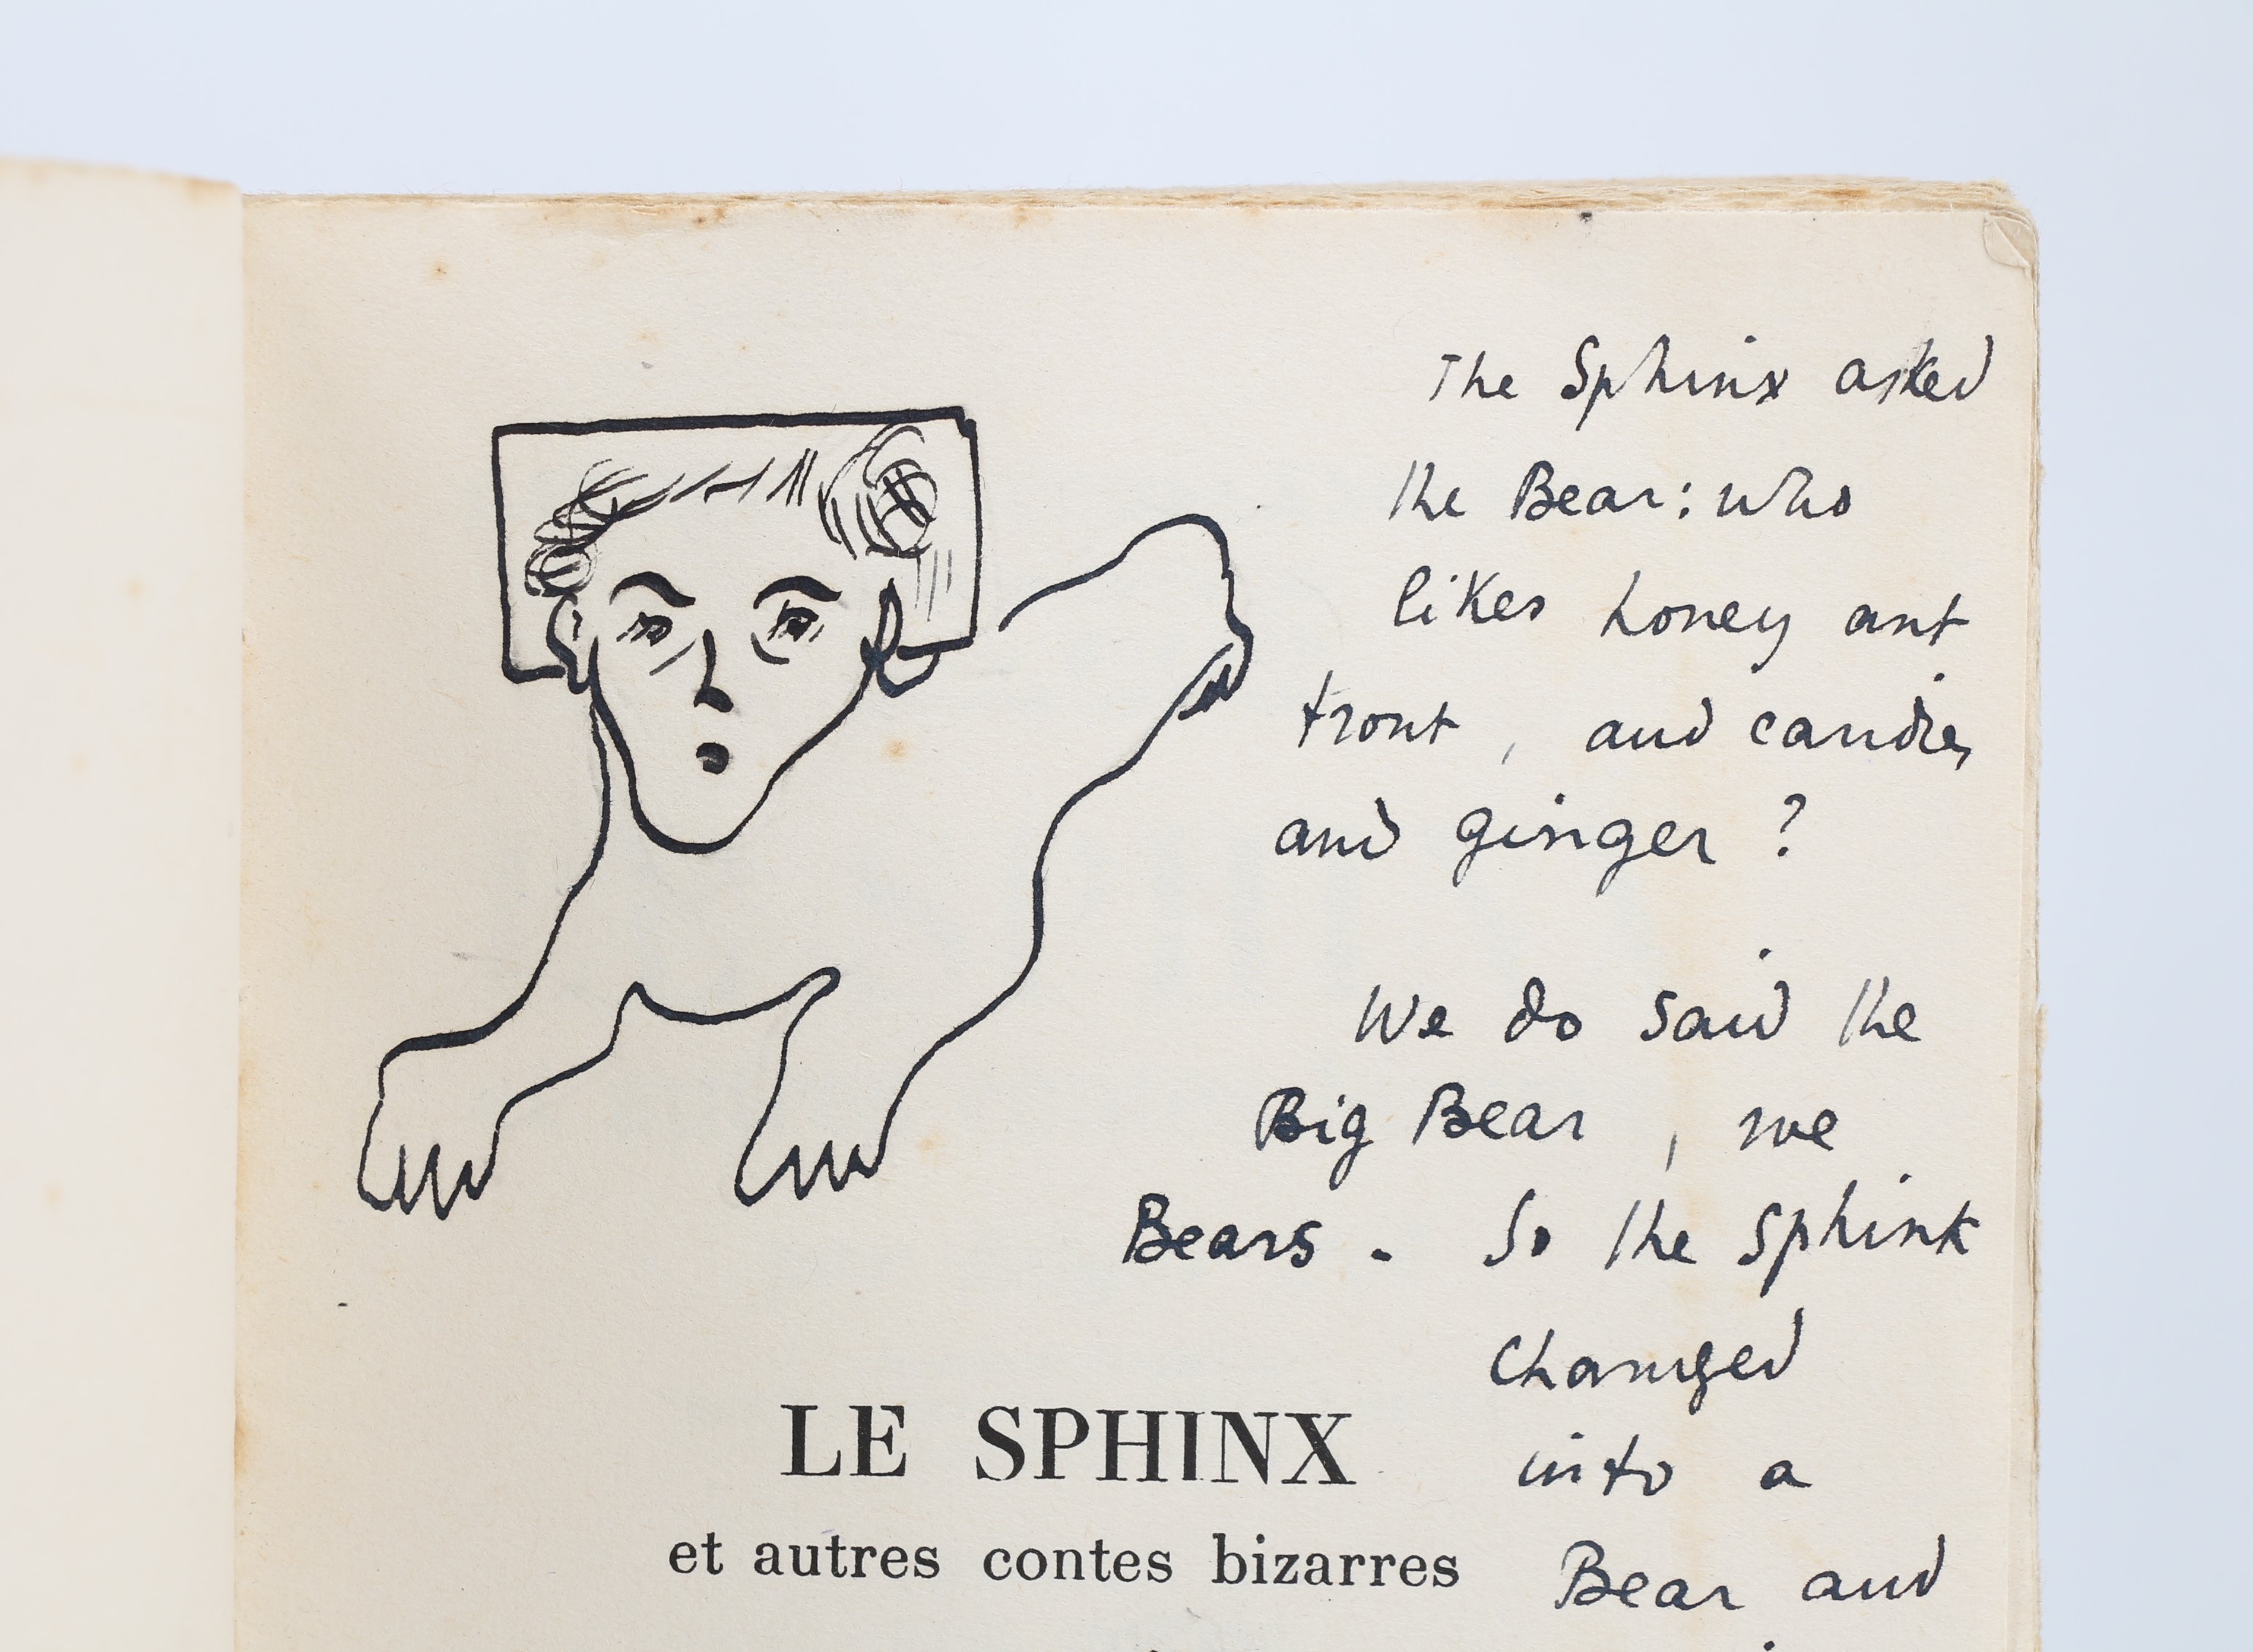 The Sphinx asked
the Bear: who
likes honey ant
trout, and candies
and ginger?
We do said the
Big Bear, we
Bears. So the Sphink
changed
into a
Bear and
LE SPHINX
et autres contes bizarres